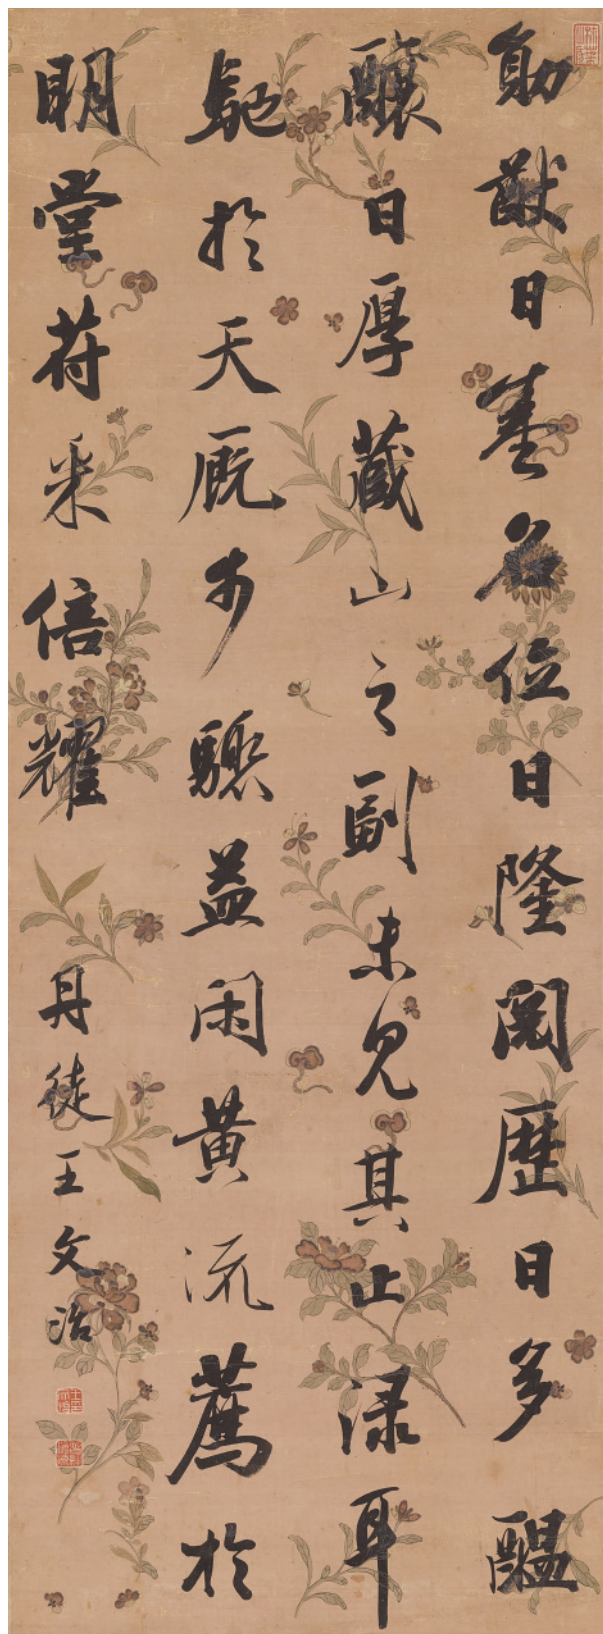 勛猷日盛名位日隆閱歷日多醞
釀日厚藏山之副未見其止渌耳
馳於天厩步驟益閑黃流薦於
明堂苻采倍耀
丹徒王文治